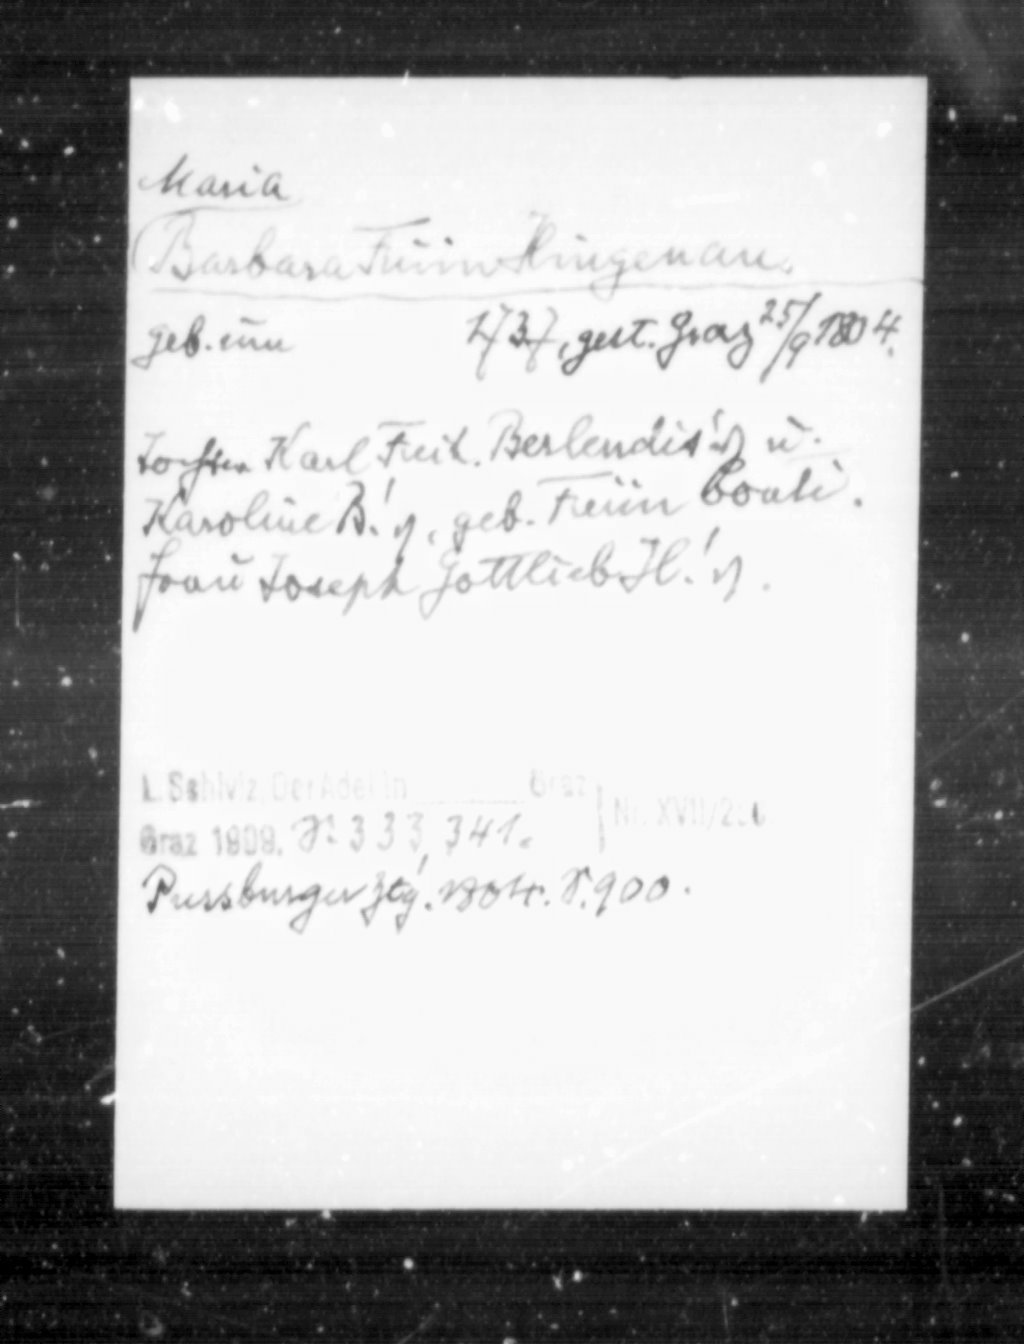 Maria
Barbara Freiin Hingenau.
geb. um 1737, gest. Graz 25/9 1804.
Tochter Karl Freih. Berlendis's u.
Karoline B.'s, geb. Freiin Conti.
Frau Joseph Gottlieb H.'s.
L. Schiviz, Der Adel in Graz
Graz 1909. S. 333, 341. Nr. XVII/2
Pressburger Ztg. 1804. S. 900.